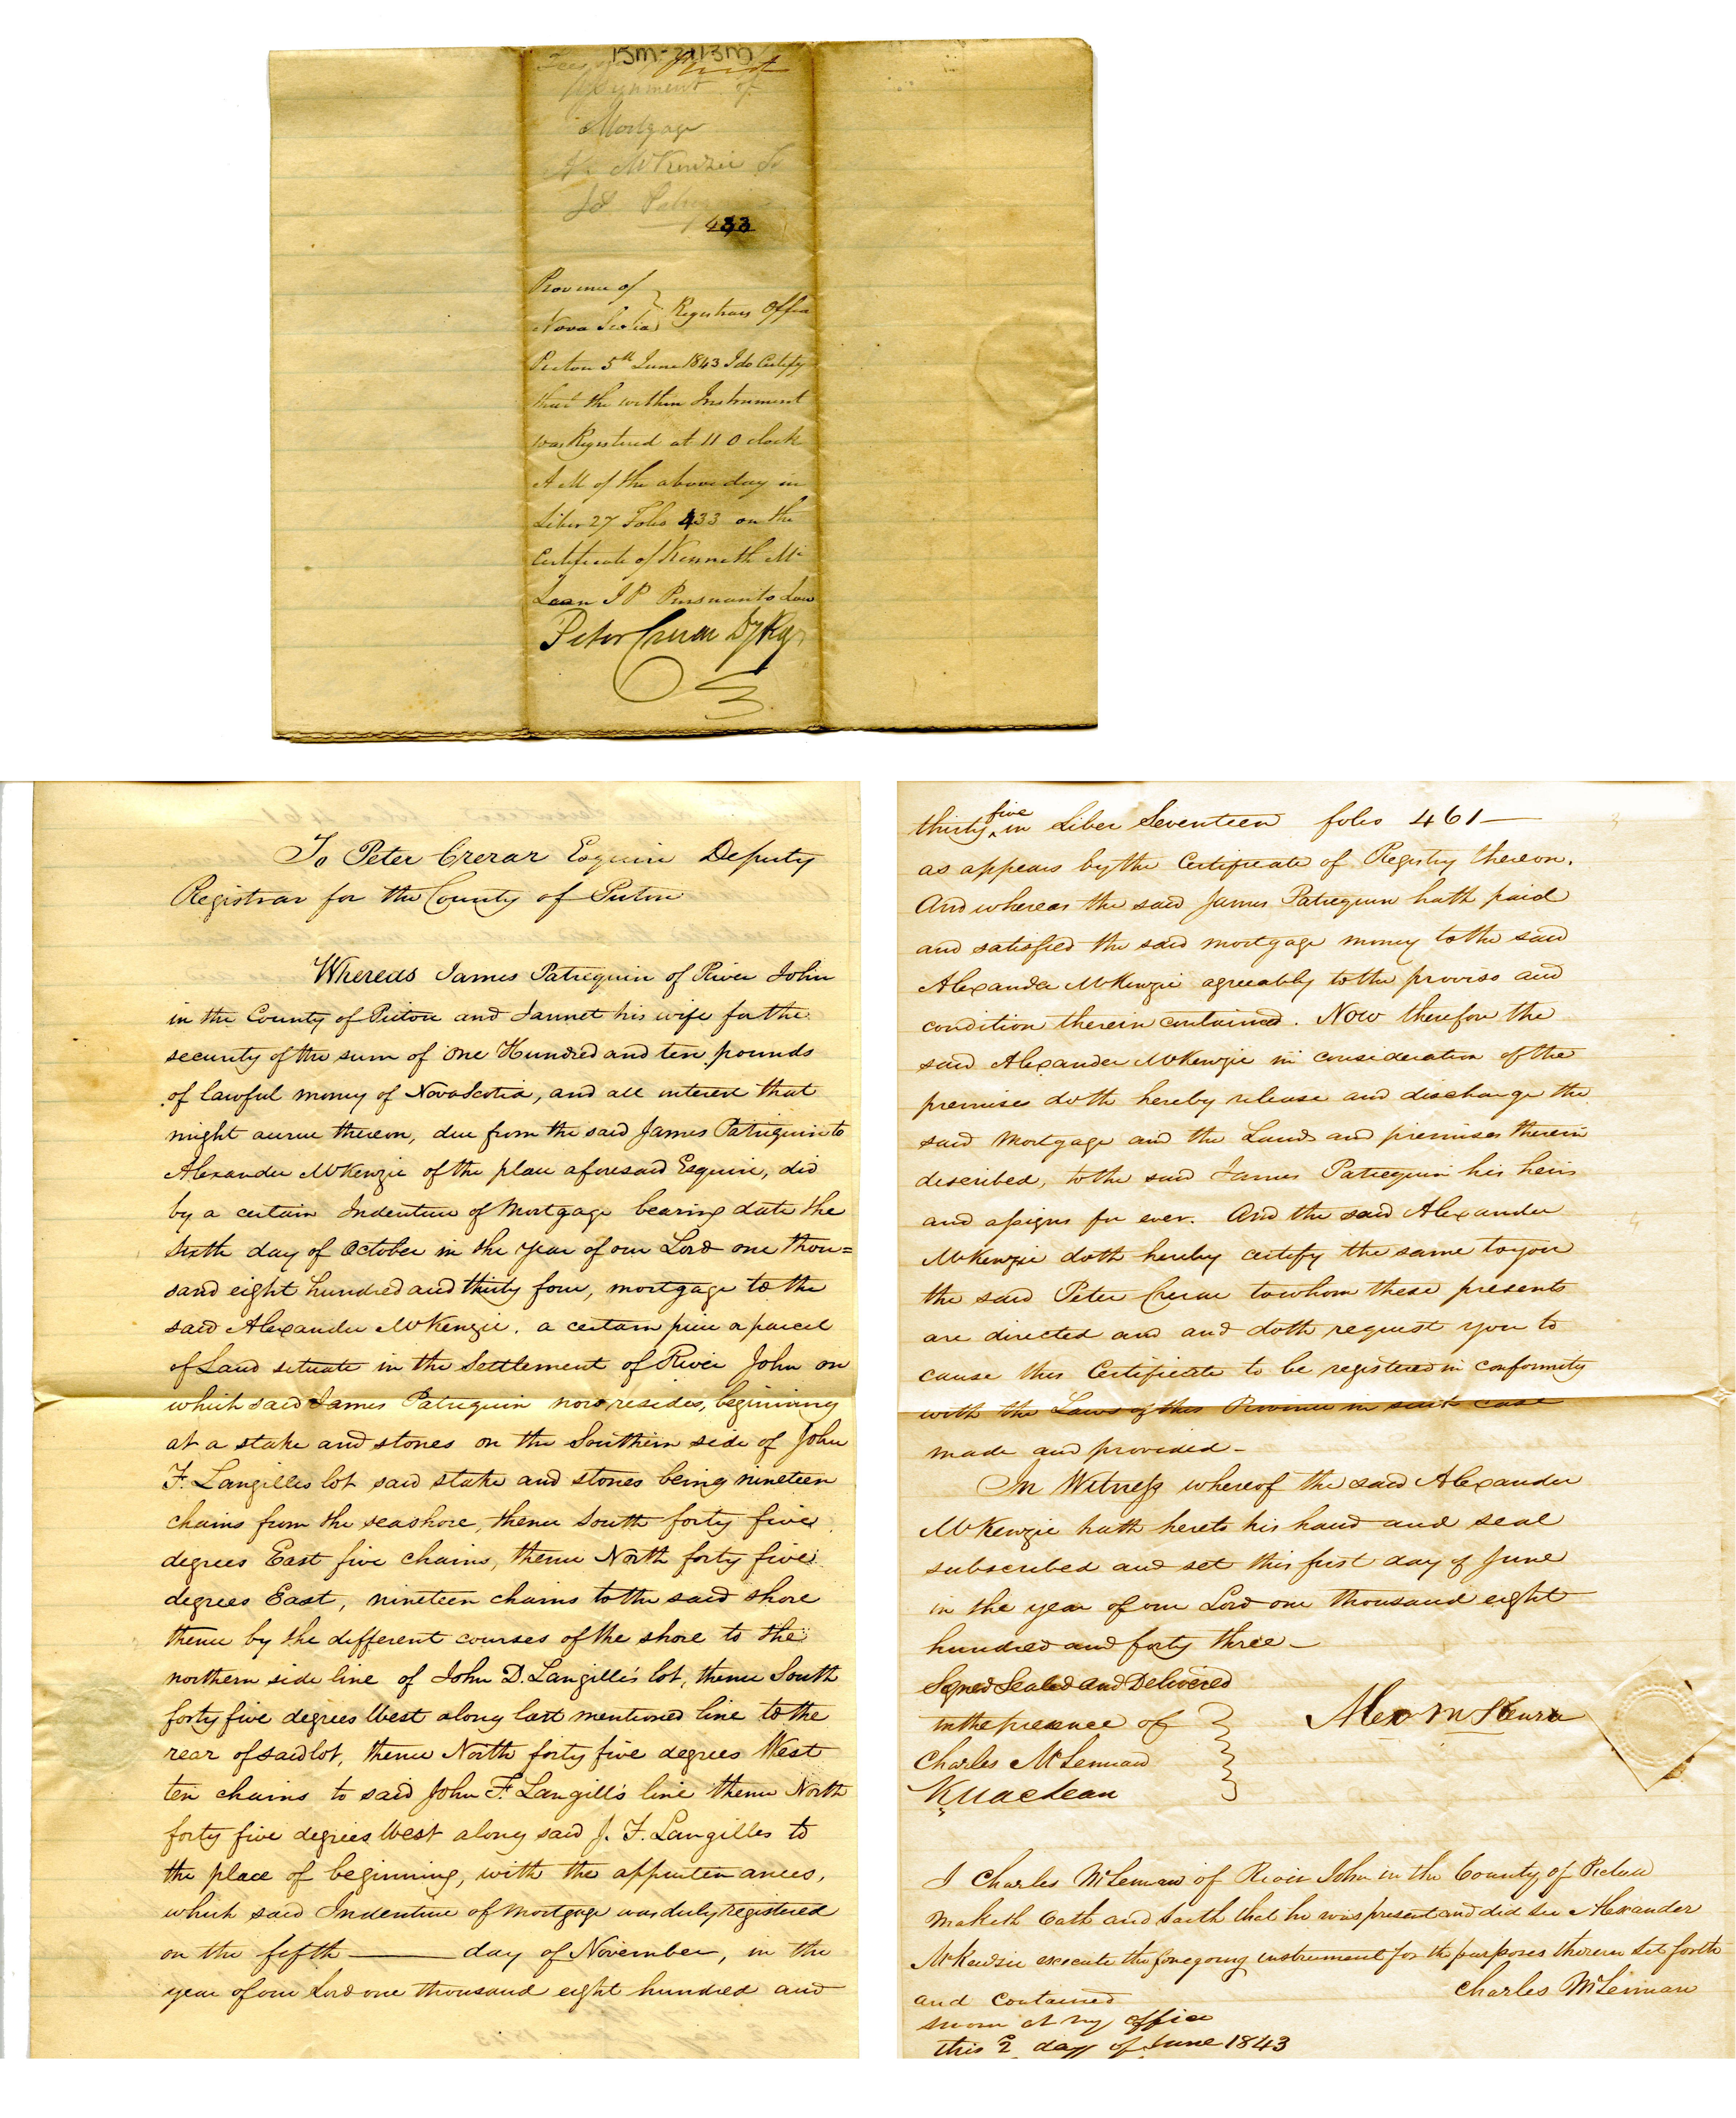 15m-2113m
Assignment of
Mortgage
McKenzie
433
Province of
Nova Scotia } Registrars Office
Pictou 5th June 1843 I do Certify
that the within Instrument
was Registered at 11 O clock
A M of the above day in
Liber 27 Folio 433 on the
Certificate of Kenneth Mc
Lean J P Pursuant to Law
Peter Crerar Dy Regr
To Peter Crerar Esquire Deputy
Registrar for the County of Pictou
Whereas James Patriquin of River John
in the County of Pictou and Jannet his wife for the
security of the sum of One Hundred and ten pounds
of lawful money of Nova Scotia, and all interest that
might accrue thereon, due from the said James Patriquin to
Alexander McKenzie of the place aforesaid Esquire, did
by a certain Indenture of Mortgage bearing date the
Sixth day of October in the year of our Lord one thou=
sand eight hundred and thirty four, mortgage to the
said Alexander McKenzie, a certain piece a parcel
of Land situate in the Settlement of River John on
which said James Patriquin now resides, beginining
at a stake and stones on the Southern side of John
F. Langilles lot said stake and stones being nineteen
chains from the seashore, thence South forty five
degrees East five chains, thence North forty five
degrees East, nineteen chains to the said shore
thence by the different courses of the shore to the
northern side line of John D. Langille's lot, thence South
forty five degrees West along last mentioned line to the
rear of said lot, thence North forty five degrees West
ten chains to said John F. Langill's line thence North
forty five degrees West along said J. F. Langilles to
the place of beginning, with the appurtenances,
which said Indenture of Mortgage was duly registered
on the fifth ——— day of November, in the
year of our Lord one thousand eight hundred and
thirty five in Liber Seventeen folio 461 —
as appears by the Certificate of Registry thereon.
And whereas the said James Patriquin hath paid
and satisfied the said mortgage money to the said
Alexander McKenzie agreeably to the proviso and
condition therein contained. Now therefore the
said Alexander McKenzie in consideration of the
premises doth hereby release and discharge the
said Mortgage and the Lands and premises therein
described, to the said James Patriquin his heirs
and assigns for ever. And the said Alexander
McKenzie doth hereby certify the same to you
the said Peter Crerar to whom these presents
are directed and and doth request you to
cause this Certificate to be registered in conformity
with the Laws of this Province in such case
made and provided -
In Witness whereof the said Alexander
McKenzie hath hereto his hand and seal
subscribed and set this first day of June
in the year of our Lord one thousand eight
hundred and forty three —
Signed Sealed and Delivered
in the presence of
Charles McLennan
K MacLean
Alex McKenzie
I Charles McLennan of River John in the County of Pictou
Maketh Oath and Saith that he was present and did See Alexander
McKenzie execute the foregoing instrument for the purposes therein Set forth
and Contained
Charles McLennan
Sworn at my office
this 2 day of June 1843